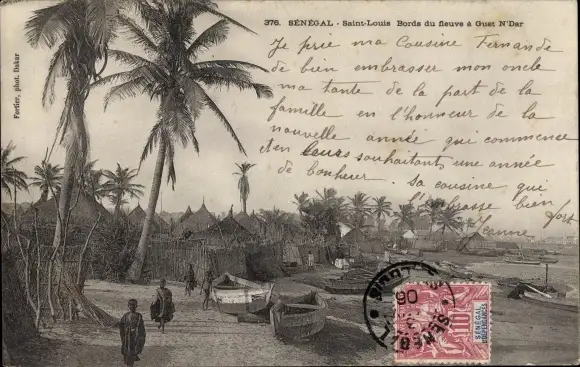 376. SÉNÉGAL - Saint-Louis Bords du fleuve à Guet N'Dar
Fortier, phot. Dakar
Je prie ma Cousine Fernande
de bien embrasser mon oncle
ma tante de la part de la
famille en l'honneur de la
nouvelle année qui commence
et en leurs souhaitant une année
de bonheur. Sa cousine qui
l'embrasse bien fort
Jeanne
ST LOUIS
SENEGAL
06
10
SÉNÉGAL
ET DÉPENDANCES